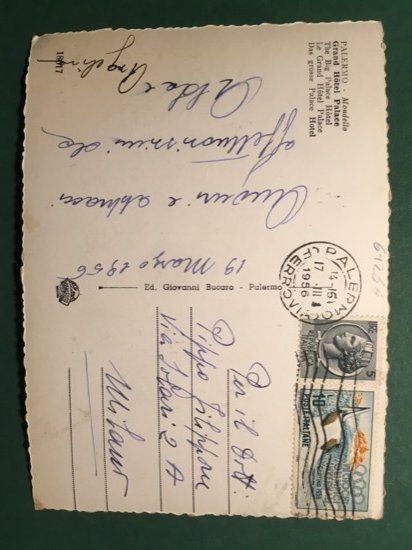 PALERMO Mondello
Grand Hôtel Palace
The Big Palace Hôtel
Le Grand Hôtel Palace
Das grosse Palace Hotel
19 Marzo 1956
Auguri e abbracci
affettuosissimi da
Angelina
18817
Ed. Giovanni Bucaro - Palermo
PALERMO
FERROVIA
14-15
17 III
1956
5
10
POSTE ITALIANE
Per il Dott.
Pippo Filippone
Via Solari 2 A
Milano